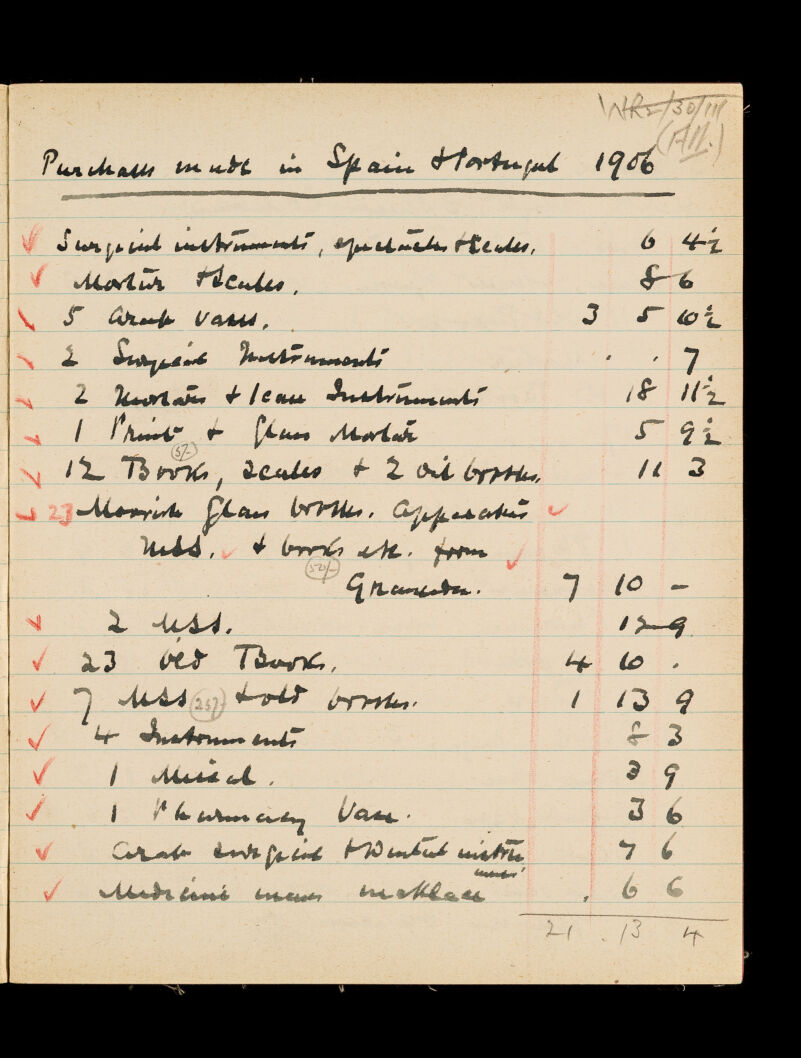 WRs/30/111
(All.)
Purchases made in Spain & Portugal 1906
Surgical instruments, spectacles & scales. 6 4½
Mortar & scales. 8 6
5 Arab vases. 3 5 10½
2 Surgical Instruments . . 7
2 Mortars & Instruments 18 11½
1 Print & Glass Mortar 5 9½
(5/-)
12 Books, scales & 2 oil bottles. 11 3
23 Moorish Glass bottles. Apparatus
MSS. & books etc. from
(50/-)
Granada. 7 10 -
2 MSS. 12 9
23 Old Books. 4 10 .
7 MSS (25/-) & old bottles. 1 13 9
4 Instruments 8 3
1 Missal. 3 9
1 Pharmacy Vase. 3 6
Arab surgical & Dental instru
ments 7 6
Medicine mans necklace . 6 6
21 . 13 4